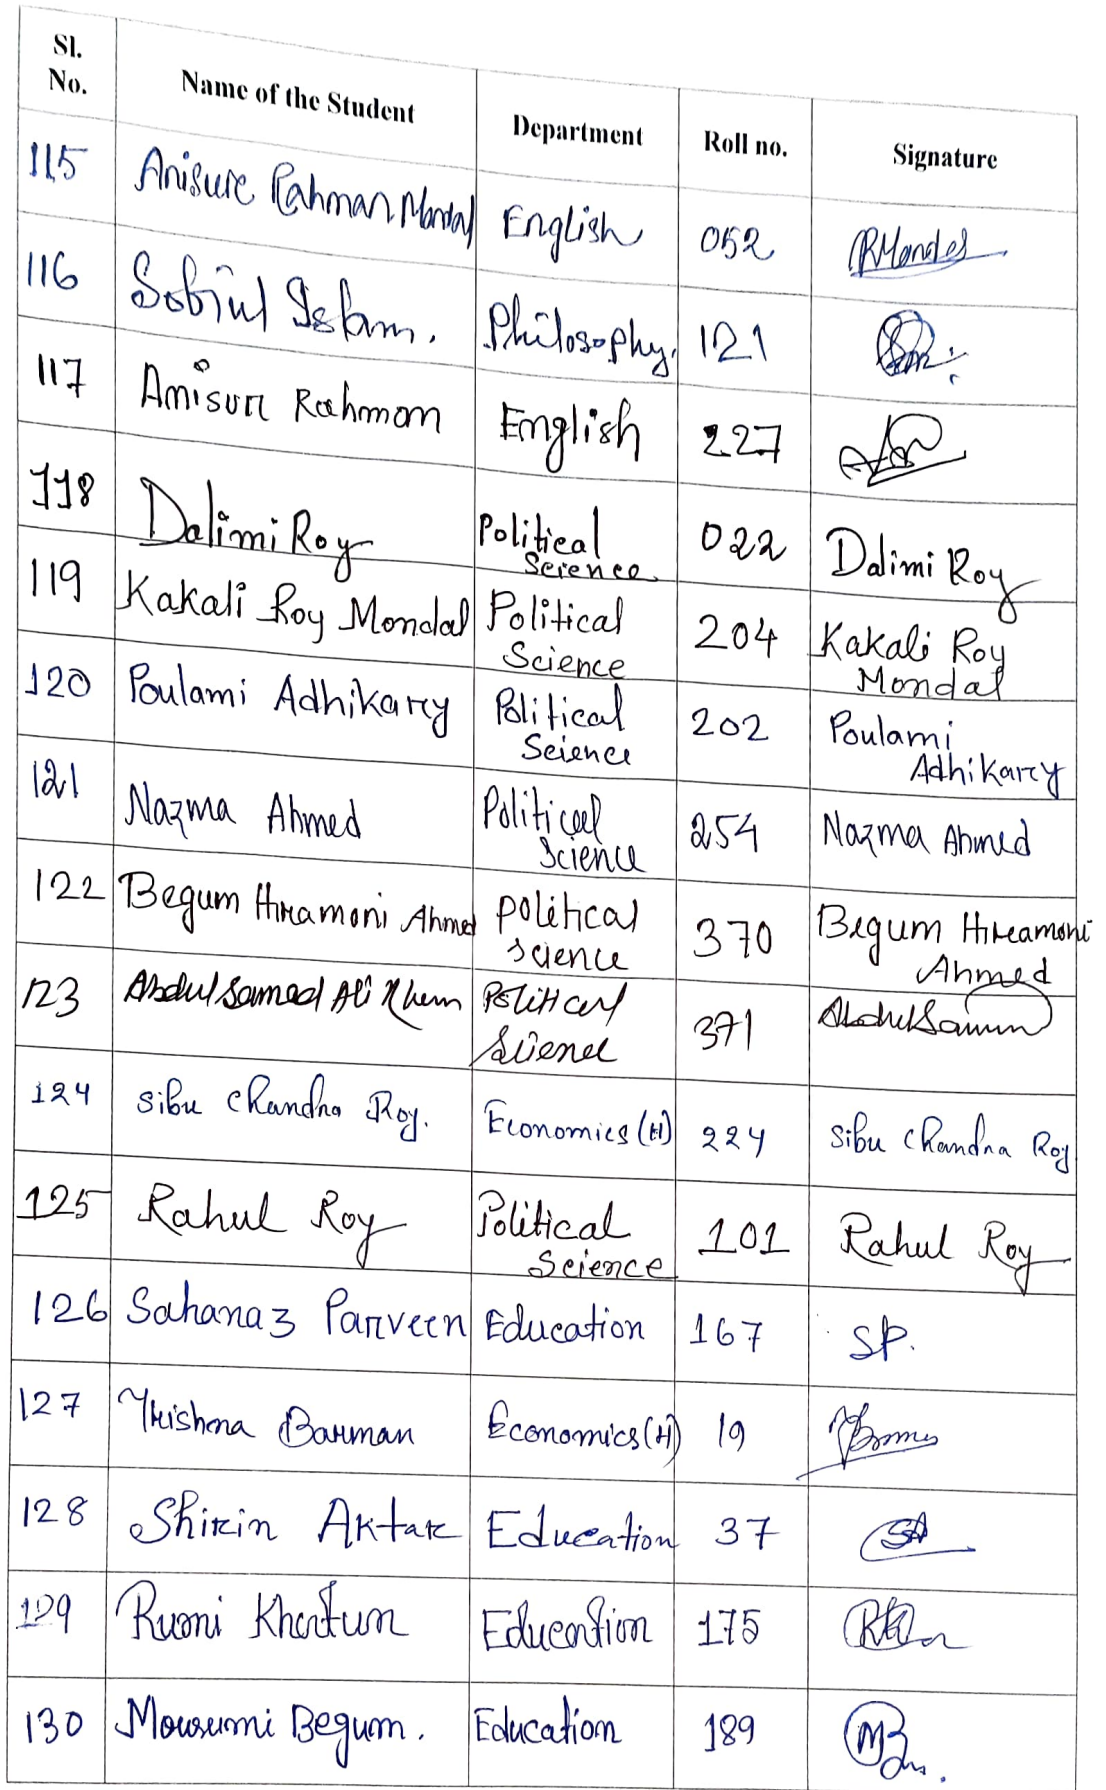 Sl. No. Name of the Student Department Roll no. Signature
115 Anisure Rahman Mondal English 052 RMondal
116 Sobiul Islam. Philosophy. 121
117 Anisur Rahman English 227
118 Dalimi Roy Political Science. 022 Dalimi Roy
119 Kakali Roy Mondal Political Science 204 Kakali Roy Mondal
120 Poulami Adhikary Political Science 202 Poulami Adhikary
121 Nazma Ahmed Political Science 254 Nazma Ahmed
122 Begum Hiramoni Ahmed political science 370 Begum Hiramoni Ahmed
123 Abdul Samad Ali Khan Political Science 371
124 Sibu Chandra Roy. Economics (H) 224 Sibu Chandra Roy
125 Rahul Roy Political Science 101 Rahul Roy
126 Sahanaz Parveen Education 167 SP.
127 Trishna Barman Economics (H) 19
128 Shirin Aktar Education 37 SA
129 Rumi Khatun Education 175
130 Mousumi Begum. Education 189